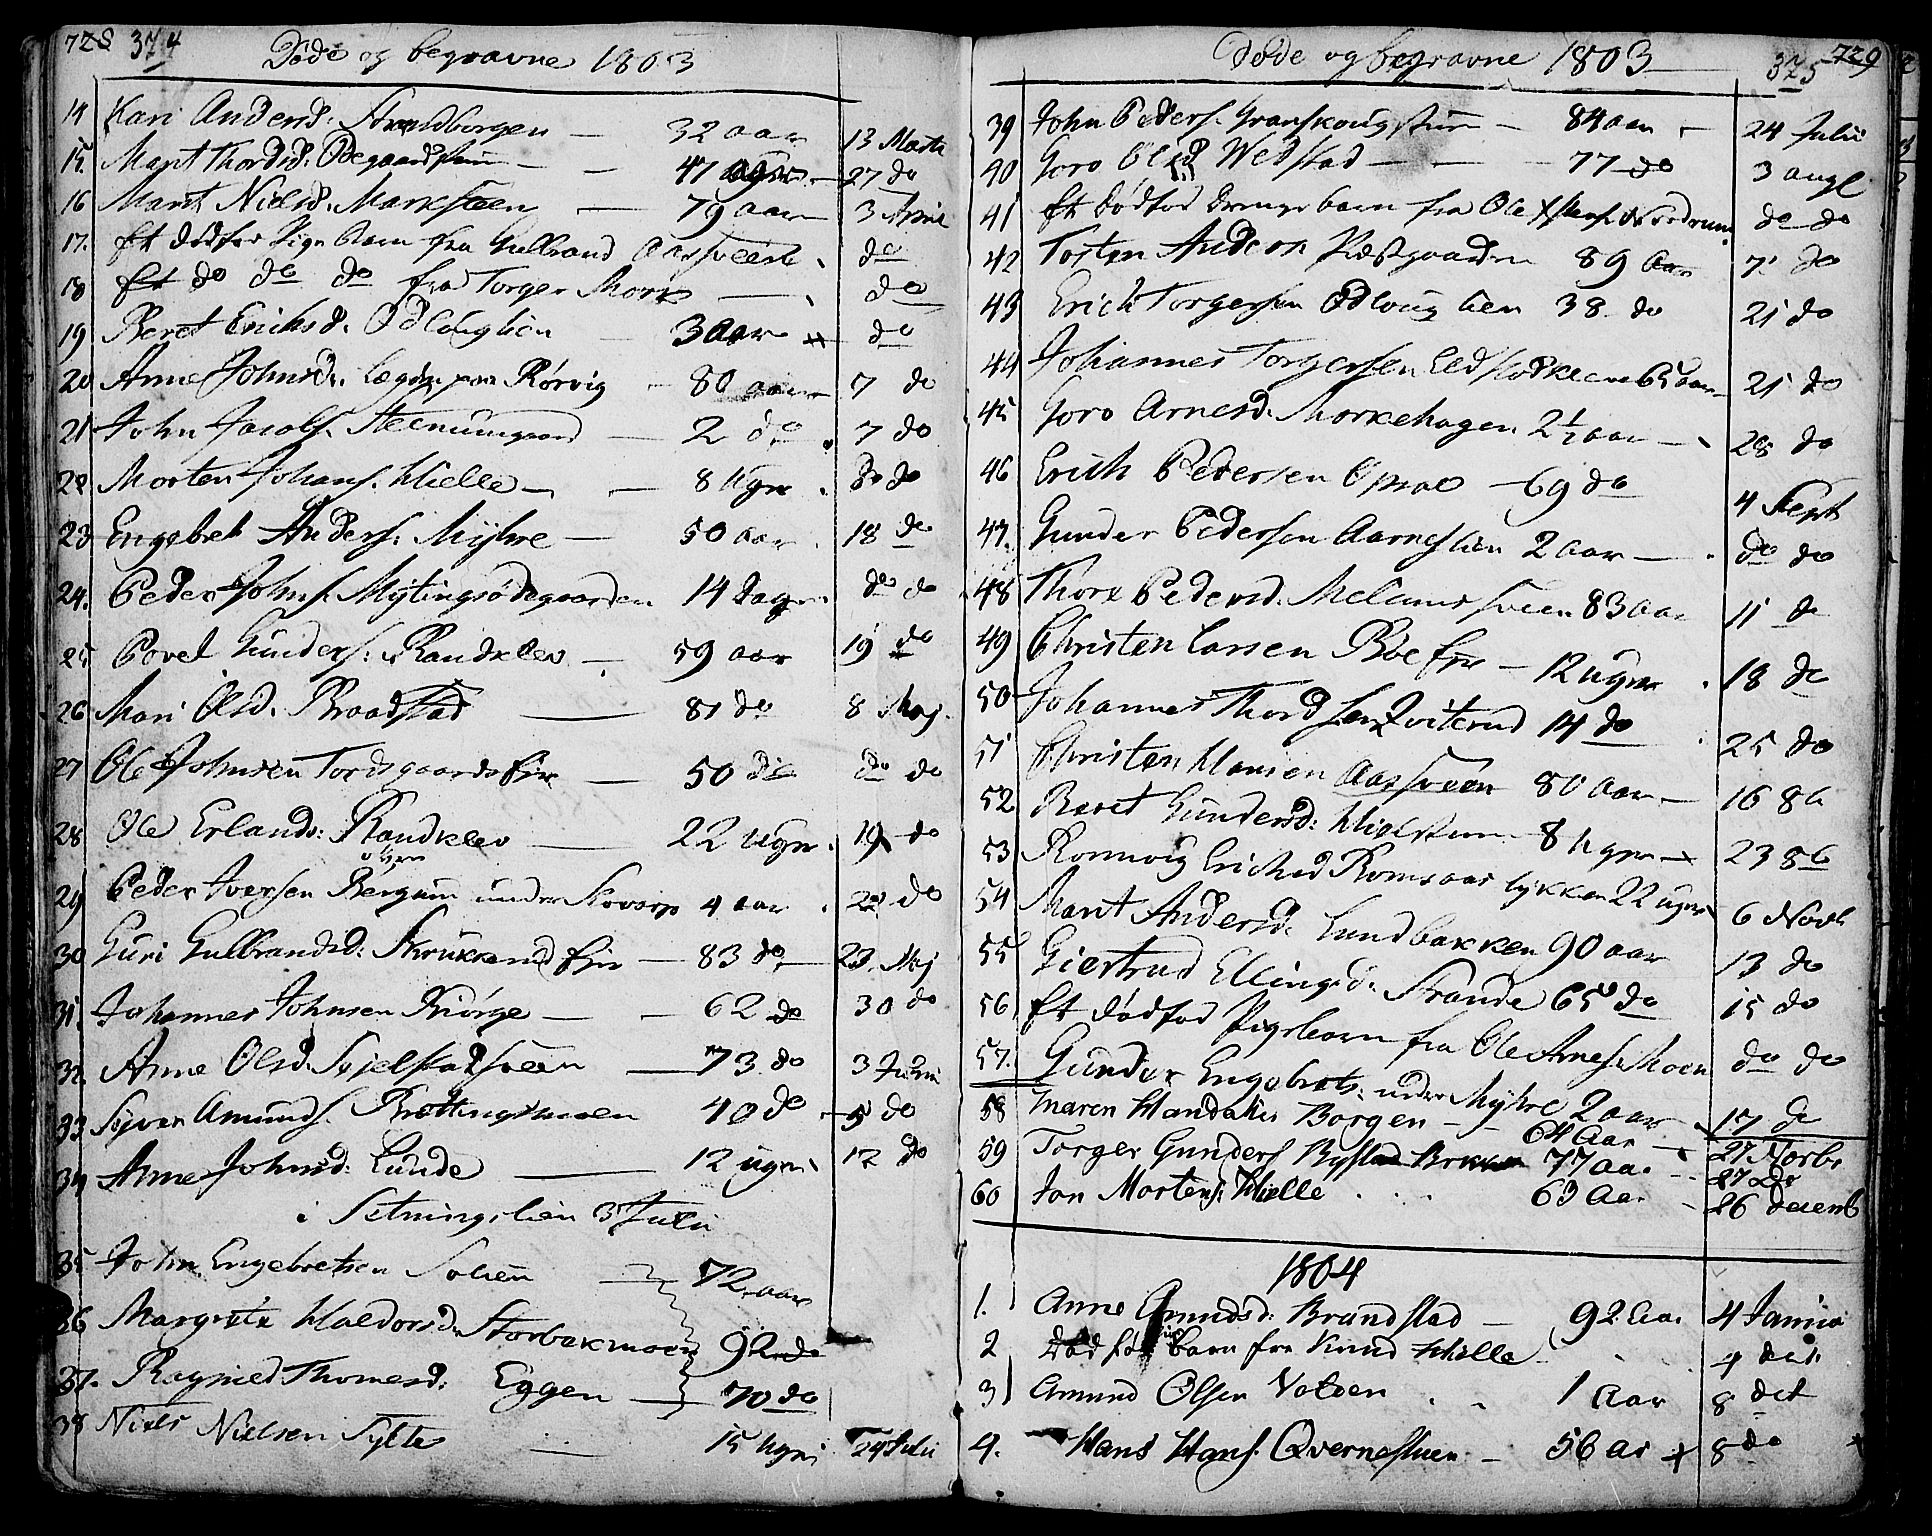 728 374
Døde og begravne 1803
14 Kari Andersd. Strandborgen — 32 aar 13 Marti
15. Marit Thordsd. Ødegaardstuen — 47 — 27 do
16 Marit Nielsd. Marksteen — 79 aar 3 April
17. Et dødfød Pige Barn fra Gulbrand Aassveen do
18 Et do do do fra Torger Mork — do
19 Beret Erichsd. Odlouglien 3 Aar do
20 Anne Johnsd. Rørvig 80 aar 7 do
21 John Jacobs. — 2 do 7 do
22 Morten Johans. Hielle — 8 Ugr do do
23 Engebret Anders. Myhre — 50 aar 18 do
24. Peder Johns. Mytingsødegaarden 14 Dage do do
25 Povel Gunders. Randklev — 59 aar 19 do
26 Mari Olsd. Braadstad — 81 do 8 Maj
27 Ole Johnsen Tordsgaards Eje — 50 do do do
28 Ole Erlands: Randklev — 22 Ugr. 19 do
29 Peder Iversen Bergum under 4 aar 22 do
30 Guri Gulbrandsd: Skrukkerud Eje — 83 do 23 Maj
31. Johannes Johnsen Kiørge — 62 do 30 do
32. Anne Olsd. — 73 do 3 Junii
33 Syver Amunds. 40 do 5 do
34 Anne Johnsd: Lunde — 12 ugr 12 do
i Setningslien 3 Julii
35 John Engebretsen Solien — 72 aar
36 Margrete Haldorsd. Storbakmoen 92 do
37. Ragnied Thomesd. Eggen — 70 do
38 Niels Nielsen Sylte — 15 Ugr 24 Julii
Døde og begravne 1803 375 729
39 John Peders. Granskougstuen — 84 aar — 24 Julii
40 Goro Olsd Wedstad — 77 do 3 augl
41 Et Dødfød Drengebarn fra Ole Nordrum do do
42 Tosten Anders Prestgaarden 89 Aar 7 do
43 Erich Torgersen Odlouglien 38 do 21 do
44 Johannes Torgersen 65 aar 21 do
45 Goro Arnesd. Morkehagen 2½ aar — 28 do
46 Erich Pedersen Opsal — 69 do 4 Sept
47. Gunder Pedersen Aarneslien 2 aar — do do
48 Thore Pedersd. 83 aar 11 do
49 Christen Larsen Bøe Eje — 12 ugr 18 do
50 Johannes Thordsen Qviterud 14 do 25 do
51 Christen Hansen Aassveen 80 aar — 16 8b
52 Beret Gundersd: 8 Ugr — 23 8b
53 Ronnoug Erichsd Romsaas lykken 22 ugr 6 Novb
54 Marit Andersd. Lundbakken 90 aar 13 do
55 Giertrud Ellingsd. Strande 65 do 15 do
56 Et dødfød Pigebarn fra Ole Arnes. Moen do do
57. Gunder Engebrets. under Myhre 2 aar 17 do
58 Maren Borgen — 64 Aar 27 Novbr
59 Torger Gunders 77 aar 27 do
60 Jon Mortens. Hielle 63 Aar 26 decemb
1804
1. Anne Amundsd: Brandstad — 92 Aar 4 Januar
2 Død fød barn fra Knud Hielle 4 dit
3 Amund Olsen 1 Aar 8 dit
4. Hans Hans. Qvernestuen — 56 ar 8 do